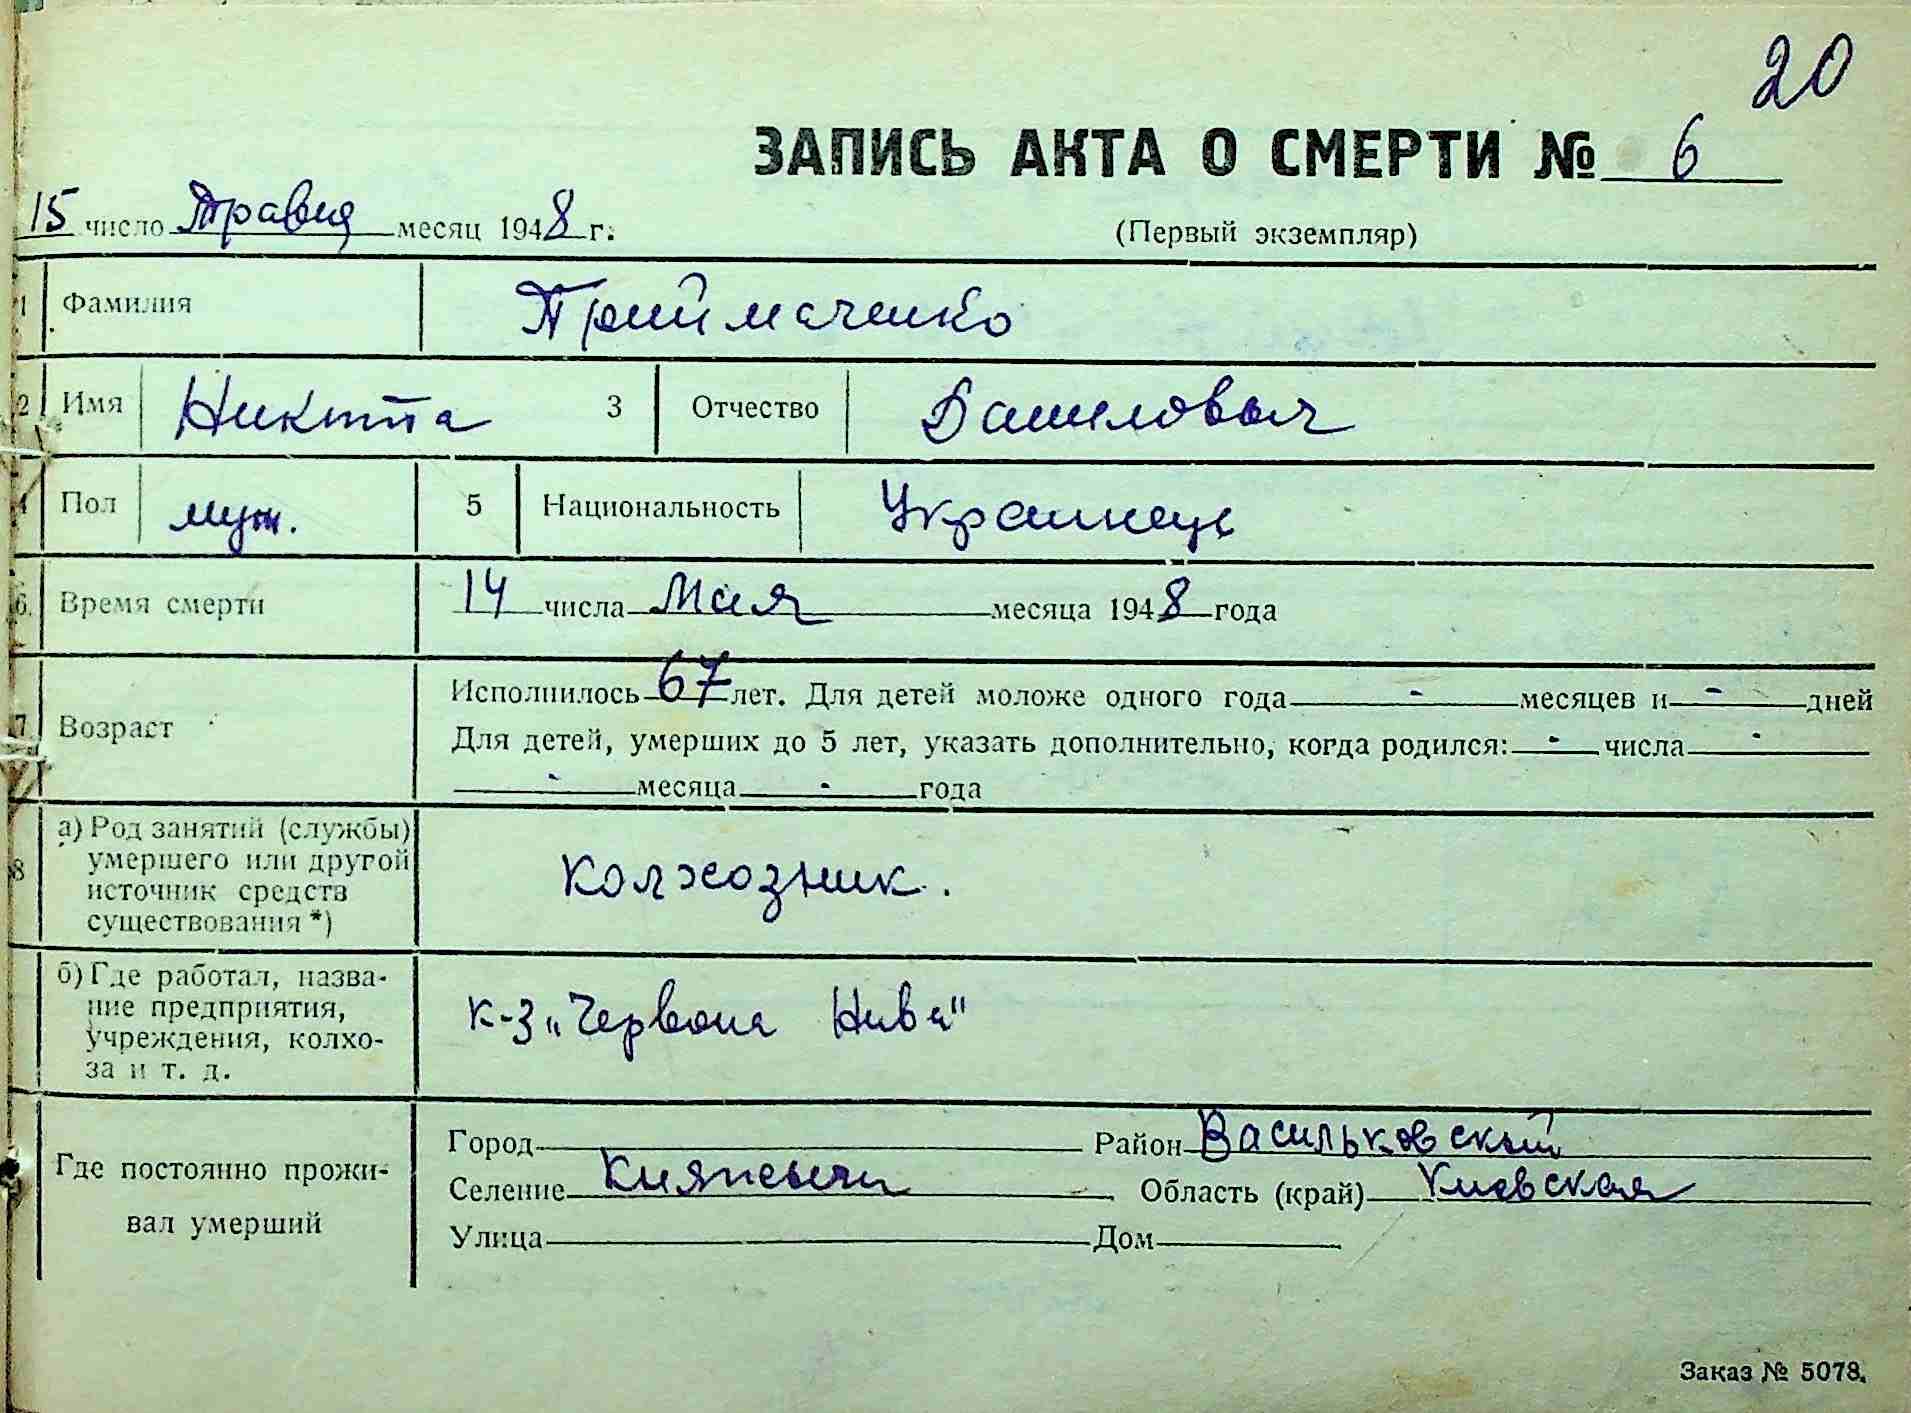 20
ЗАПИСЬ АКТА О СМЕРТИ № 6
15 число Травня месяц 1948 г.
(Первый экземпляр)
1 Фамилия Приймаченко
2 Имя Никита 3 Отчество Данилович
4 Пол муж. 5 Национальность Украинець
6. Время смерти 14 числа Мая месяца 1948 года
7 Возраст Исполнилось 67 лет. Для детей моложе одного года - месяцев и - дней
Для детей, умерших до 5 лет, указать дополнительно, когда родился: - числа -
- месяца - года
8 а) Род занятий (службы)
умершего или другой
источник средств
существования *)
колхозник.
б) Где работал, назва-
ние предприятия,
учреждения, колхо-
за и т. д.
к-з „Червона Нива"
Где постоянно прожи-
вал умерший
Город Район Васильковский
Селение Область (край) Киевская
Улица Дом
Заказ № 5078.